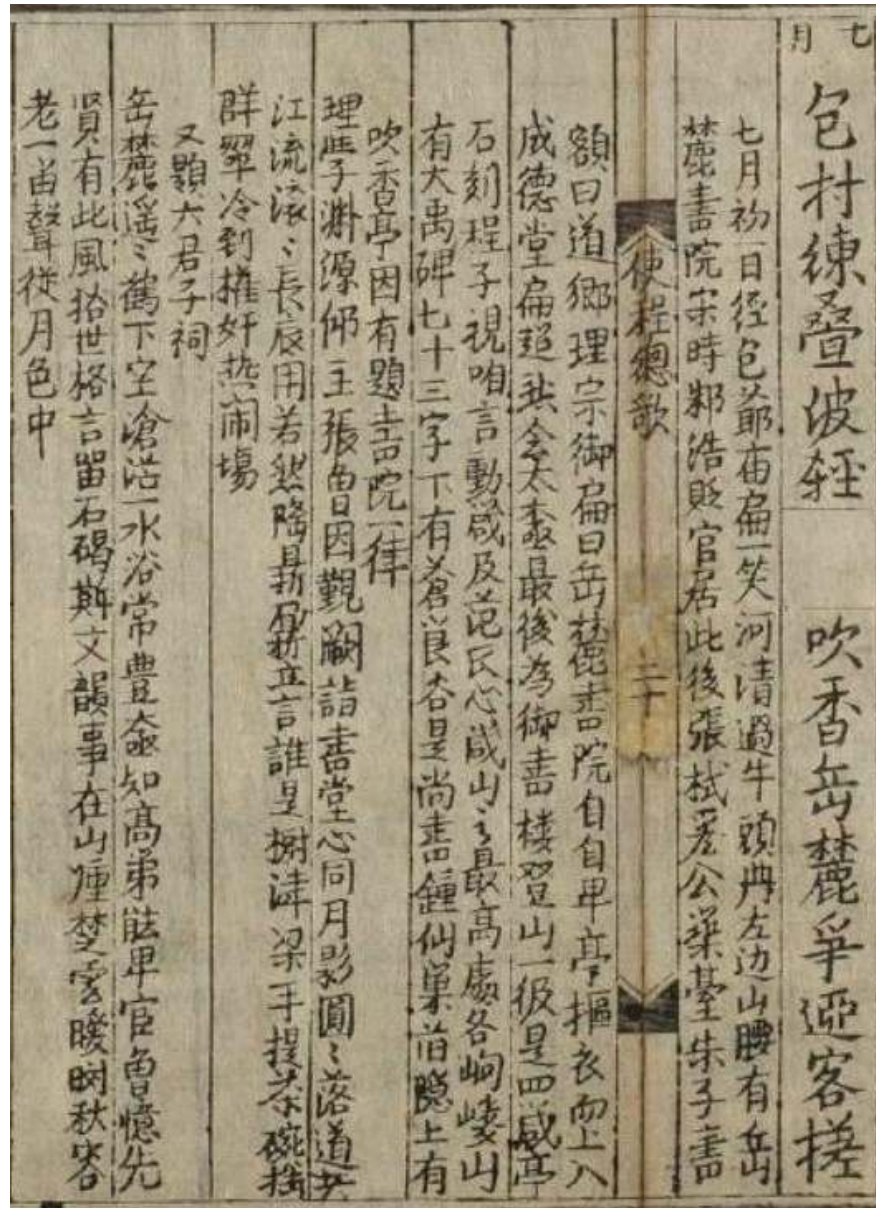 七月
包村練疊波輕　吹香岳麓爭迎客搓
七月初一日徑包爺庙扁一笑河清過牛頭冉左边山腰有岳
麓書院宋時鄒浩貶官居此後張栻爲公築臺朱子書
使程總歌　二十
額曰道鄉理宗御扁曰岳麓書院自自卑亭摳衣而上入
成德堂扁超然会太極最後為御書楼登山一级是四箴亭
石刻程子視听言動箴及范氏心箴山之最高處各岣嶁山
有大禹碑七十三字下有蒼筤谷是尚書鍾仙巢旧隱上有
吹香亭因有題書院一律
理學淵源仰主張曾因觀闕詣書堂心同月影圓〻落道共
江流滚〻長辰用若然降縣尉立言誰是樹津梁手提茶碗
群翠冷到權奸热闹場
又題六君子祠
岳麓遥〻鶴下空滄浯一水浴常豊僉知高弟能卑官曾憶先
賢有此風拾世格言留石碣斯文韻事在山煙楚雲曖树秋容
老一笛聲從月色中